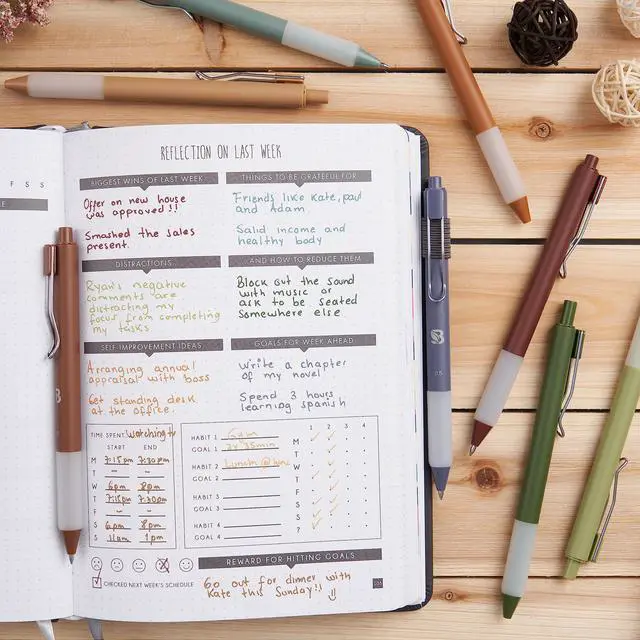 F S S
REFLECTION ON LAST WEEK
BIGGEST WINS OF LAST WEEK
Offer on new house
was approved!!
Smashed the sales
present.
THINGS TO BE GRATEFUL FOR
Friends like Kate, paul
and Adam.
Salid income and
healthy body
DISTRACTIONS
Ryan's negative
comments are
distracting my
focus from completing
my tasks
AND HOW TO REDUCE THEM
Block out the sound
with music or
ask to be seated
somewhere else
SELF-IMPROVEMENT IDEAS
Arranging annual
appraisal with boss
Get standing desk
at the office.
GOALS FOR WEEK AHEAD
Write a chapter
of my novel
Spend 3 hours
learning spanish
TIME SPENT: Watching tv
START END
M 7:15pm 7:30pm
T - -
W 6pm 8pm
T 7:15pm 7:30pm
F - -
S 6pm 8pm
S 11am 1pm
HABIT 1
GOAL 1
HABIT 2 Lunch @
GOAL 2
HABIT 3
GOAL 3
HABIT 4
GOAL 4
1 2 3 4
M
T
W
T
F
S
S
?
CHECKED NEXT WEEK'S SCHEDULE
REWARD FOR HITTING GOALS
Go out for dinner with
Kate this Sunday!!
0.5